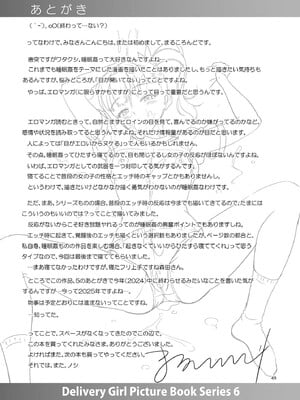 あとがき
(´ｰ`).｡oO(終わって…ない？)
ってなわけで、みなさんこんにちは、または初めまして、まるころんどです。
唐突ですがワタクシ、睡眠姦って大好きなんですよね…。
これまでも睡眠姦をテーマにした漫画を描いたことはありましたし、もっと描きたい気持ちも
あるんですが、悩みどころが、「目が開いてない」ってことですよね。
やはり、エロマンガ（に限らずかもですが）にとって目って重要だと思うんです。
エロマンガ読むときって、自然とまずヒロインの目を見て、喜んでるのか嫌がってるのかなど、
感情や状況を読み取ってると思うんですよね。それだけ情報量があるのが目だと思います。
人によっては「目がエロいからヌケる」って人もいるかもしれません。
その点、睡眠姦ってひたすら寝てるので、目も閉じてるし女の子の反応がほぼないんですよね。
いわば、エロマンガとしての武器を一つ封印してる気がするんです。
さらに寝てることで普段の女の子の性格とエッチ時のギャップとかもありませんし。
というわけで、描きたいけどなかなか描く勇気がわかないのが睡眠姦なわけです。
ただ、まあ、シリーズもの の場合、普段のエッチ時の反応は今までも描いてきてるので、たまには
こういうのもいいのでは？ってことで描いてみました。
反応がないからこそ好き放題ヤれるってのが睡眠姦の興奮ポイントでもありますしね。
エッチ時に起きて、覚醒後のエッチも描くという選択肢もありましたが、ページ数の都合と、
私自身、睡眠姦ものの作品を楽しむ場合、「起きなくていいからひたすら寝ててくれ」って思う
タイプなので、今回は最後まで寝ててもらいました。
…まあ寝てなかったわけですが。寝たフリ上手ですね森田さん。
ところでこの作品、5のあとがきで今年(2024)中に終わらせるみたいなことを書いた気が
するんですが…今って2025年ですよね…
物事は予定どおりには進まないってことですね。
…知ってた。
ってことで、スペースがなくなってきたのでこの辺で。
この本を買ってくれたみなさま、ありがとうございました。
よければまた、次の本も買ってやってください。
それでは、また、ノシ
49
Delivery Girl Picture Book Series 6